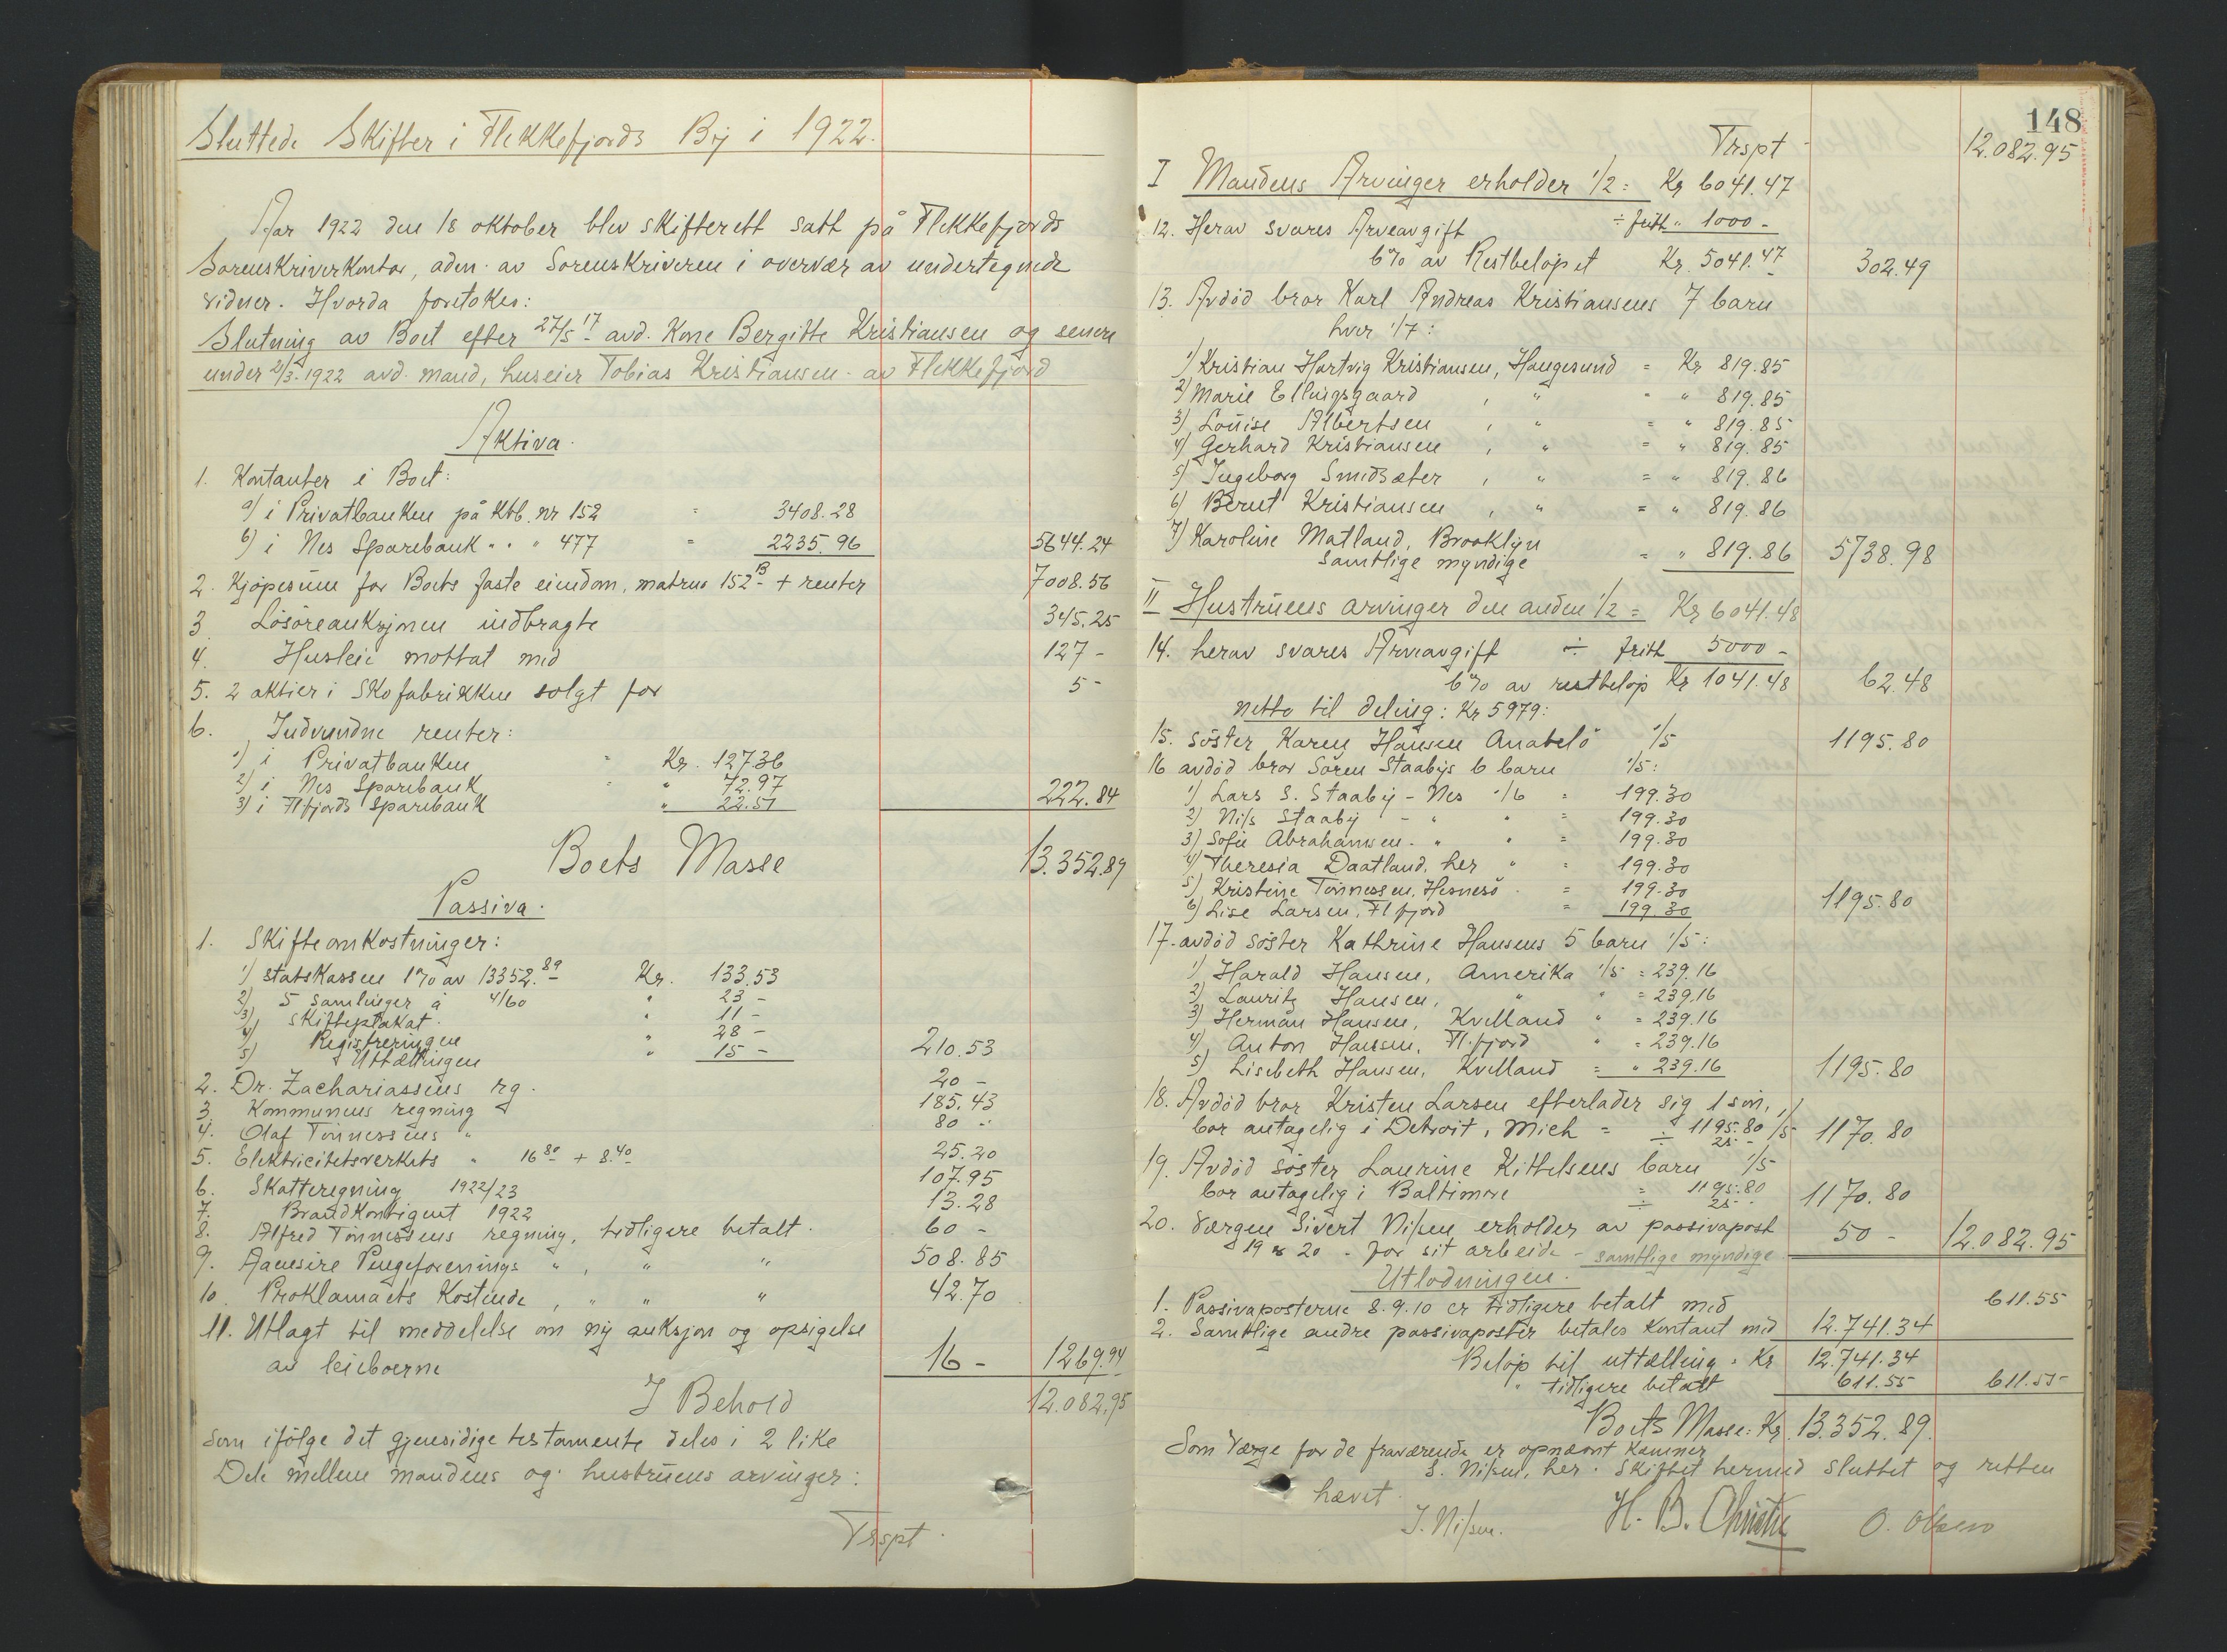 Sluttede Skifter i Flekkefjords By i 1922.
Aar 1922 den 18 oktober blev skifterett satt på Flekkefjords
Sorenskriverkontor, adm. av Sorenskriveren i overvær av undertegnede
vidner. Hvorda foretokes:
Slutning av Boet efter 27/5 17 avd. Kone Bergitte Kristiansen og senere
under 2/3 1922 avd. mand, huseier Tobias Kristiansen av Flekkefjord
Aktiva.
1. Kontanter i Boet:
a) i Privatbanken på Kbb. nr 152 = 3408.28
b) i Nes Sparebank " " " 477 = 2235.96 5644.24
2. Kjöpesum for Boets faste eiendom, matrno 152 B + renter 7008.56
3 Lösöreauksjonen indbragte 345.25
4. Husleie mottat med 127 -
5. 2 aktier i Skofabrikken solgt for 5 -
6. Indvundne renter:
1) i Privatbanken " Kr. 127.36
2) i Nes Sparebank " " 72.97
3) i Flfjords Sparebank " 22.51 222.84
Boets Masse 13.352.89
Passiva.
1. Skifteomkostninger:
1) statskassen 1% av 13352.89 Kr. 133.53
2) 5 samlinger à 4/60 " 23 -
3) Skifteplakat. " 11 -
4) Registreringen " 28 -
5) Uttællingen " 15 - 210.53
2. Dr. Zachariassens rg. 20 -
3. Kommunens regning 185.43
4. Olaf Tönnessens " 80 -
5. Elektricitetsverkets " 16 80 + 8.40 25.20
6. Skatteregning 1922/23 107.95
7. Brandkontigent 1922 13.28
8. Alfred Tönnessens regning, tidligere betalt. 60 -
9. Aanesire Pengeforenings " , " " 508.85
10. Proklamaets Kostende , " " " 42.70
11. Utlagt til meddelelse om ny auksjon og opsigelse
av leieboerne 16 - 1269.94
I Behold 12.082.95
som ifölge det gjensidige testamente deles i 2 like
Dele mellem mandens og hustruens arvinger:
Trspt.
148
Trspt 12.082.95
I Mandens Arvinger erholder 1/2 = Kr 6041.47
12. Herav svares Arveavgift ÷ fritt " 1000 -
6% av Restbelöpet Kr. 5041.47 302.49
13. Avdöd bror Karl Andreas Kristiansens 7 barn
hver 1/7:
1) Kristian Hartvig Kristiansen, Haugesund = Kr 819.85
2) Marie Ellingsgaard , " " " 819.85
3) Louise Albertsen , " = " 819.85
4) Gerhard Kristiansen , " = " 819.85
5) Ingeborg Smidsæter , " = " 819.86
6) Bernt Kristiansen , " = " 819.86
7) Karoline Matland, Brooklyn = " 819.86 5738.98
Samtlige myndige
II Hustruens arvinger den anden 1/2 = Kr 6041.48
14. herav svares Arveavgift ÷ fritt 5000 -
6% av restbelöp Kr 1041.48 62.48
netto til deling: Kr 5979:
15. söster Karen Hansen Anabelö 1/5 1195.80
16 avdöd bror Sören Staabys 6 barn 1/5:
1) Lars S. Staaby - Nes 1/6 = 199.30
2) Nils Staaby - " " = 199.30
3) Sofie Abrahamsen - " " = 199.30
4) Theresia Daatland, her " = 199.30
5) Kristine Tönnessen, Hesnesö - = 199.30
6) Lise Larsen, Flfjord = 199.30 1195.80
17. avdöd söster Kathrine Hansens 5 barn 1/5:
1) Harald Hansen, Amerika 1/5 = 239.16
2) Lauritz Hansen, " " = 239.16
3) Herman Hansen, Kvelland " = 239.16
4) Anton Hansen, Fl.fjord " = 239.16
5) Lisebeth Hansen, Kvelland = " 239.16 1195.80
18. Avdöd bror Kristen Larsen efterlader sig 1 sön,
bor antagelig i Detroit, Mich = 1195.80 1/5 ÷ 25 - 1170.80
19. Avdöd söster Laurine Kittelsens barn 1/5
bor antagelig i Baltimore = 1195.80 ÷ 25 - 1170.80
20. Værgen Sivert Nilsen erholder av passivapost 50 - 12.082.95
19 & 20 - for sit arbeide - samtlige myndige.
Utlodningen.
1. Passivaposterne 8.9.10 er tidligere betalt med 611.55
2. Samtlige andre passivaposter betales kontant med 12.741.34
Belöp til uttælling. Kr 12.741.34
" tidligere betalt 611.55 611.55
Boets Masse: Kr. 13.352.89.
Som Værge for de fraværende er opnævnt Kæmner
S. Nilsen, her. Skiftet hermed sluttet og retten
hævet.
J. Nilsen. H. B. Christie O. Olsen